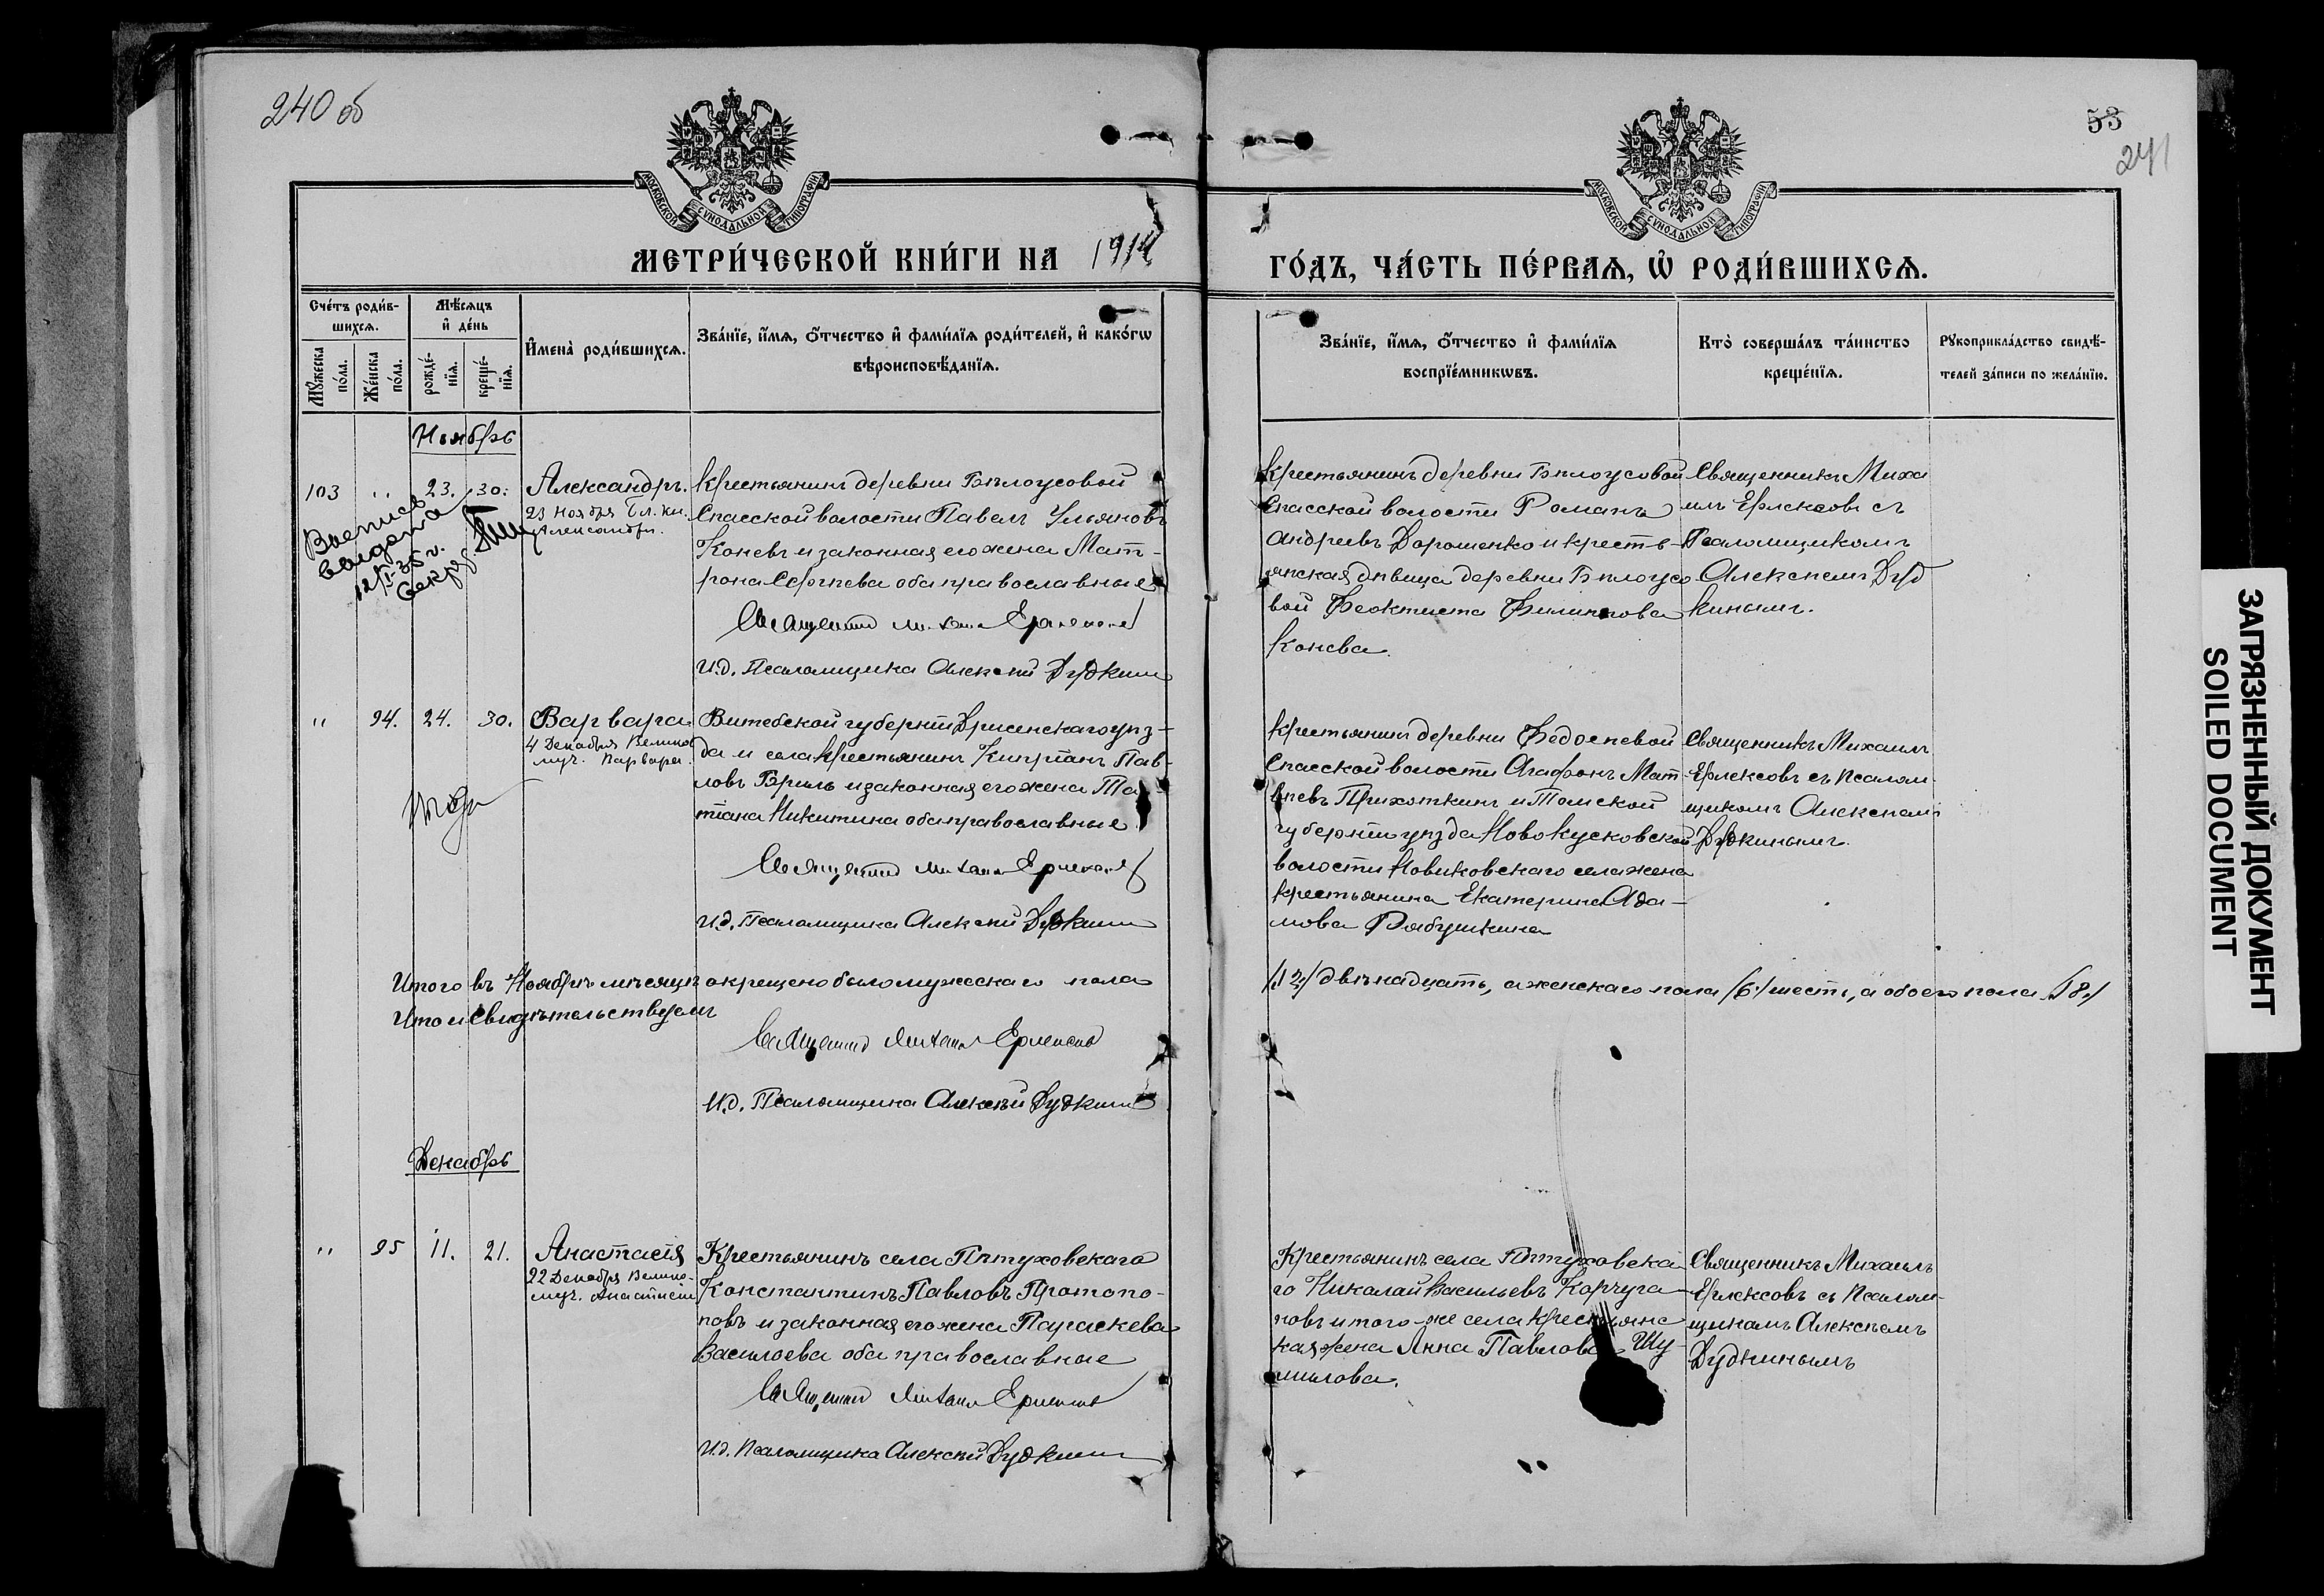 240 об
53
241
МОСКОВСКОЙ СѴНОДАЛЬНОЙ ТИПОГРАФІИ
МОСКОВСКОЙ СѴНОДАЛЬНОЙ ТИПОГРАФІИ
МЕТРИ́ЧЕСКОЙ КНИ́ГИ НА 1914 ГО́ДЪ, ЧА́СТЬ ПЕ́РВАѦ, Ѡ РОДИ́ВШИХСѦ.
Сче́тъ роди́в-
шихсѧ.
Мꙋ́жеска
по́ла.
Же́нска
по́ла.
Мѣ́сѧцъ
и҆ де́нь
рожде́-
нїѧ.
креще́-
нїѧ.
И҆мена̀ роди́вшихсѧ.
Зва́нїе, и҆́мѧ, о҆́тчество и҆ фами́лїѧ роди́телей, и҆ како́гѡ
вѣроисповѣ́данїѧ.
Зва́нїе, и҆́мѧ, о҆́тчество и҆ фами́лїѧ
воспрїе́мникѡвъ.
Кто̀ соверша́лъ та́инство
креще́нїѧ.
Рꙋкоприкла́дство свидѣ́-
телей за́писи по жела́нїю.
Ноябрь
103 " 23. 30. Александръ.
23 Ноября Бл. кн.
Александра.
Выпись
выдана
12/II-36 г.
Секр.
Крестьянинъ деревни Бѣлоусовой
Спасской волости Павелъ Ульяновъ
Коневъ и законная его жена Мат-
рона Сергѣева оба православные
Священникъ Михаилъ Ерлексовъ
И.д. Псаломщика Алексѣй Дудкинъ
Крестьянинъ деревни Бѣлоусовой
Спасской волости Романъ
Андреевъ Дорошенко и кресть-
янская дѣвица деревни Бѣлоусо-
вой Феоктиста Филиппова
Конева.
Священникъ Миха
илъ Ерлексовъ съ
Псаломщикомъ
Алексѣемъ Дуд
кинымъ.
" 94. 24. 30. Варвара
4 Декабря Велико
муч. Варвары.
Витебской губерніи Дрисенскаго уѣз-
да и села крестьянинъ Кипріанъ Пав-
ловъ Бриль и законная его жена Та
тіана Никитина оба православные
Священникъ Михаилъ Ерлексовъ
И.д. Псаломщика Алексѣй Дудкинъ
Крестьянинъ деревни Федосѣевой
Спасской волости Агафонъ Мат-
вѣевъ Прихоткинъ и Томской
губерніи уѣзда Ново Кусковской
волости Новиковскаго села жена
крестьянина Екатерина Ада-
мова Рябушкина
Священникъ Михаилъ
Ерлексовъ съ Псалом
щикомъ Алексѣемъ
Дудкинымъ.
Итого въ Ноябрѣ мѣсяцѣ окрещено было мужескаго пола /12/ двѣнадцать, а женскаго пола /6/ шесть, а обоего пола /18/
Что и свидѣтельствуемъ
Священникъ Михаилъ Ерлексовъ
И.д. Псаломщика Алексѣй Дудкинъ
Декабрь
" 95 11. 21. Анастасія
22 Декабря Велико-
муч. Анастасіи
Крестьянинъ села Пѣтуховскаго
Константинъ Павловъ Протопо-
повъ и законная его жена Параскева
Васильева оба православные
Священникъ Михаилъ Ерлексовъ
И.д. Псаломщика Алексѣй Дудкинъ
Крестьянинъ села Пѣтуховска
го Николай Васильевъ Корчуга-
новъ и того-же села крестьянс
кая жена Анна Павлова Шу-
милова.
Священникъ Михаилъ
Ерлексовъ съ Псалом-
щикомъ Алексѣемъ
Дудкинымъ
ЗАГРЯЗНЕННЫЙ ДОКУМЕНТ
SOILED DOCUMENT